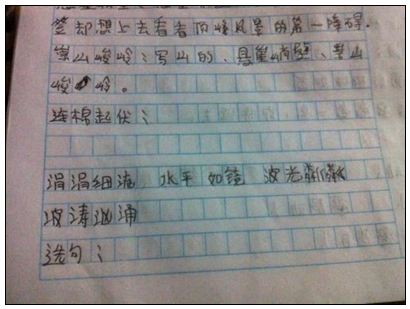 签却想上去看看下峻风景的第一障碍。
崇山峻岭：写山的、悬崖峭壁、崇山
峻岭。
连棉起伏：
涓涓细流 水平如镜 波光粼粼
波涛汹涌
选句：